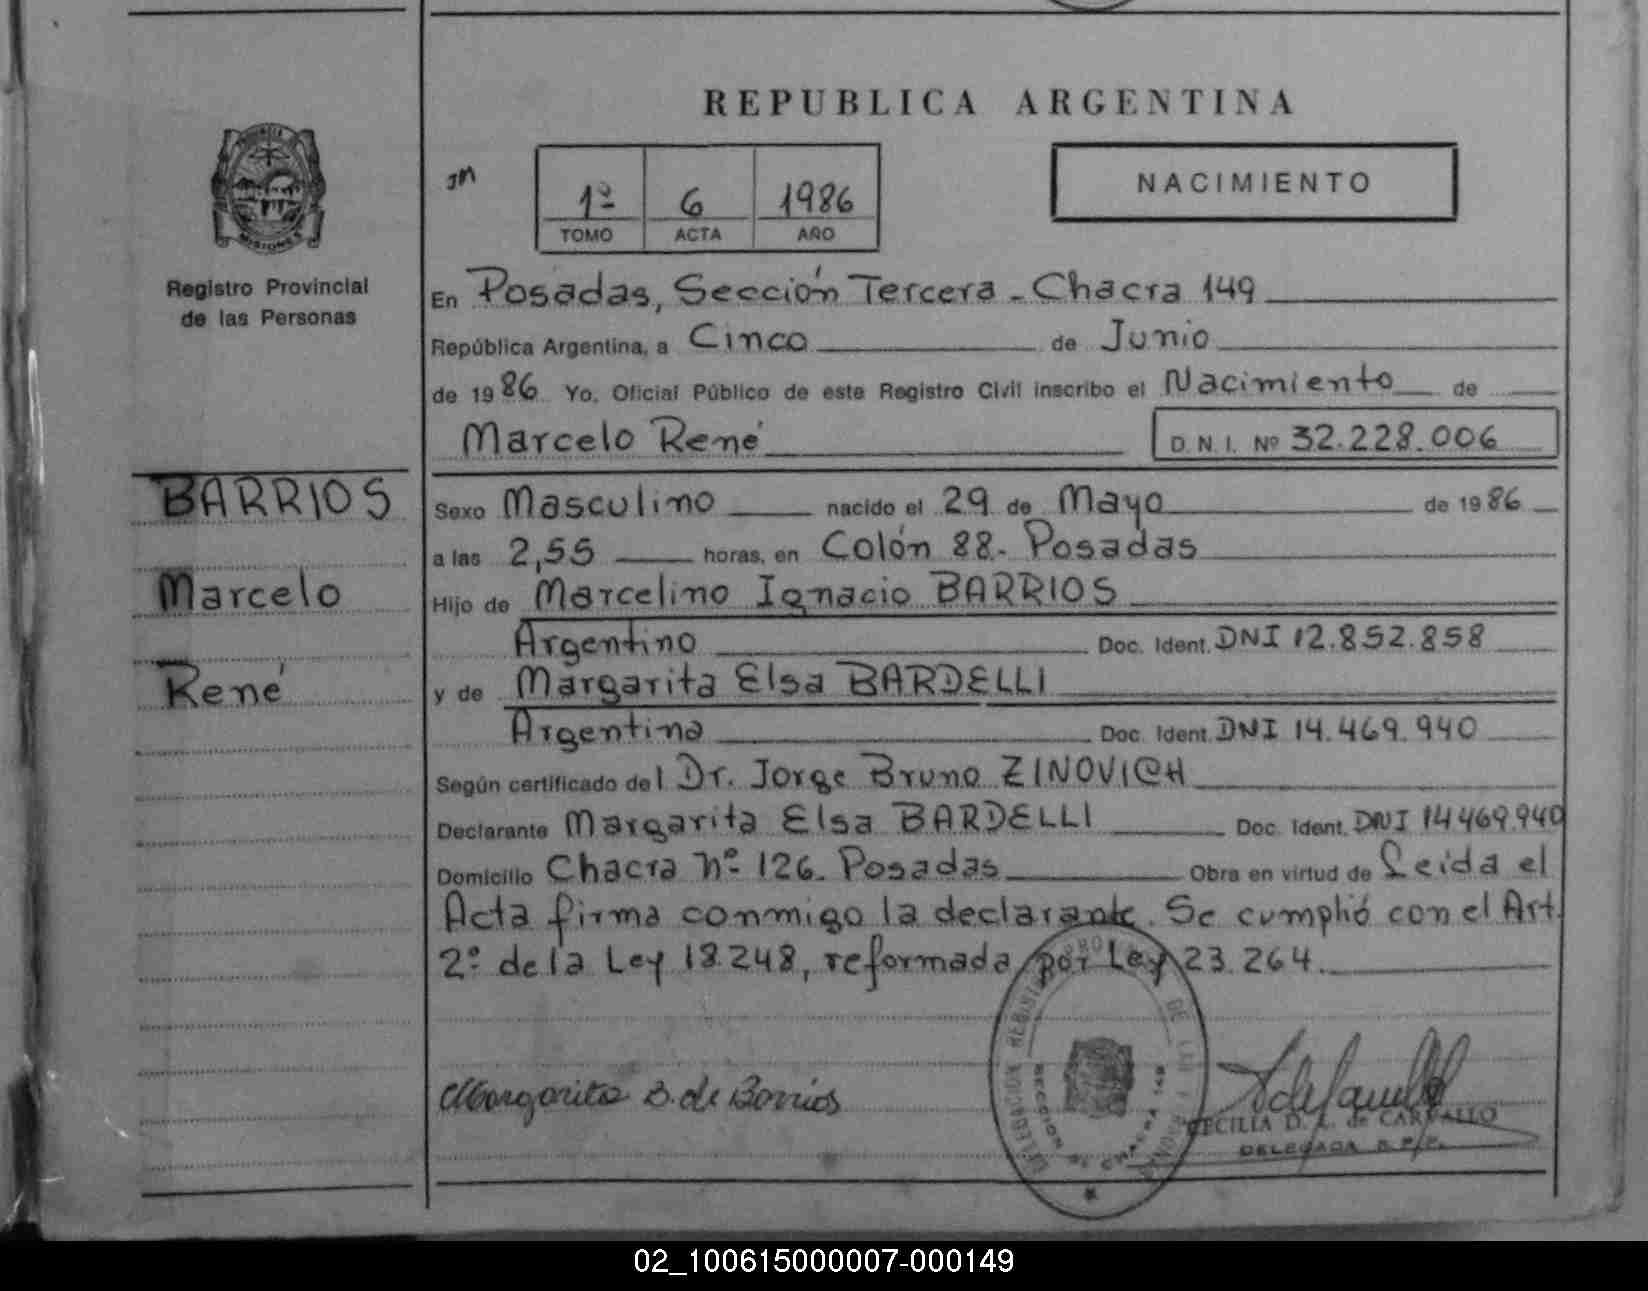 REPUBLICA ARGENTINA
MISIONES
Registro Provincial
de las Personas
JM
1º 6 1986
TOMO ACTA AÑO
NACIMIENTO
En Posadas, Sección Tercera - Chacra 149
República Argentina, a Cinco de Junio
de 1986 Yo, Oficial Público de este Registro Civil inscribo el Nacimiento de
Marcelo René D.N.I. Nº 32.228.006
BARRIOS
Marcelo
René
Sexo Masculino nacido el 29 de Mayo de 1986
a las 2,55 horas, en Colón 88.- Posadas
Hijo de Marcelino Ignacio BARRIOS
Argentino Doc. Ident. DNI 12.852.858
y de Margarita Elsa BARDELLI
Argentina Doc. Ident. DNI 14.469.940
Según certificado del Dr. Jorge Bruno ZINOVICH
Declarante Margarita Elsa BARDELLI Doc. Ident. DNI 14469.940
Domicilio Chacra Nº 126. Posadas Obra en virtud de Leida el
Acta firma conmigo la declarante. Se cumplió con el Art.
2º de la Ley 18.248, reformada por Ley 23.264.
Margarita B. de Barrios
DELEGACION REGISTRO PROV. DE LAS PERSONAS
SECCION 3ª CHACRA 149
CECILIA D. de CARVALLO
DELEGADA R.P.P.
02_100615000007-000149